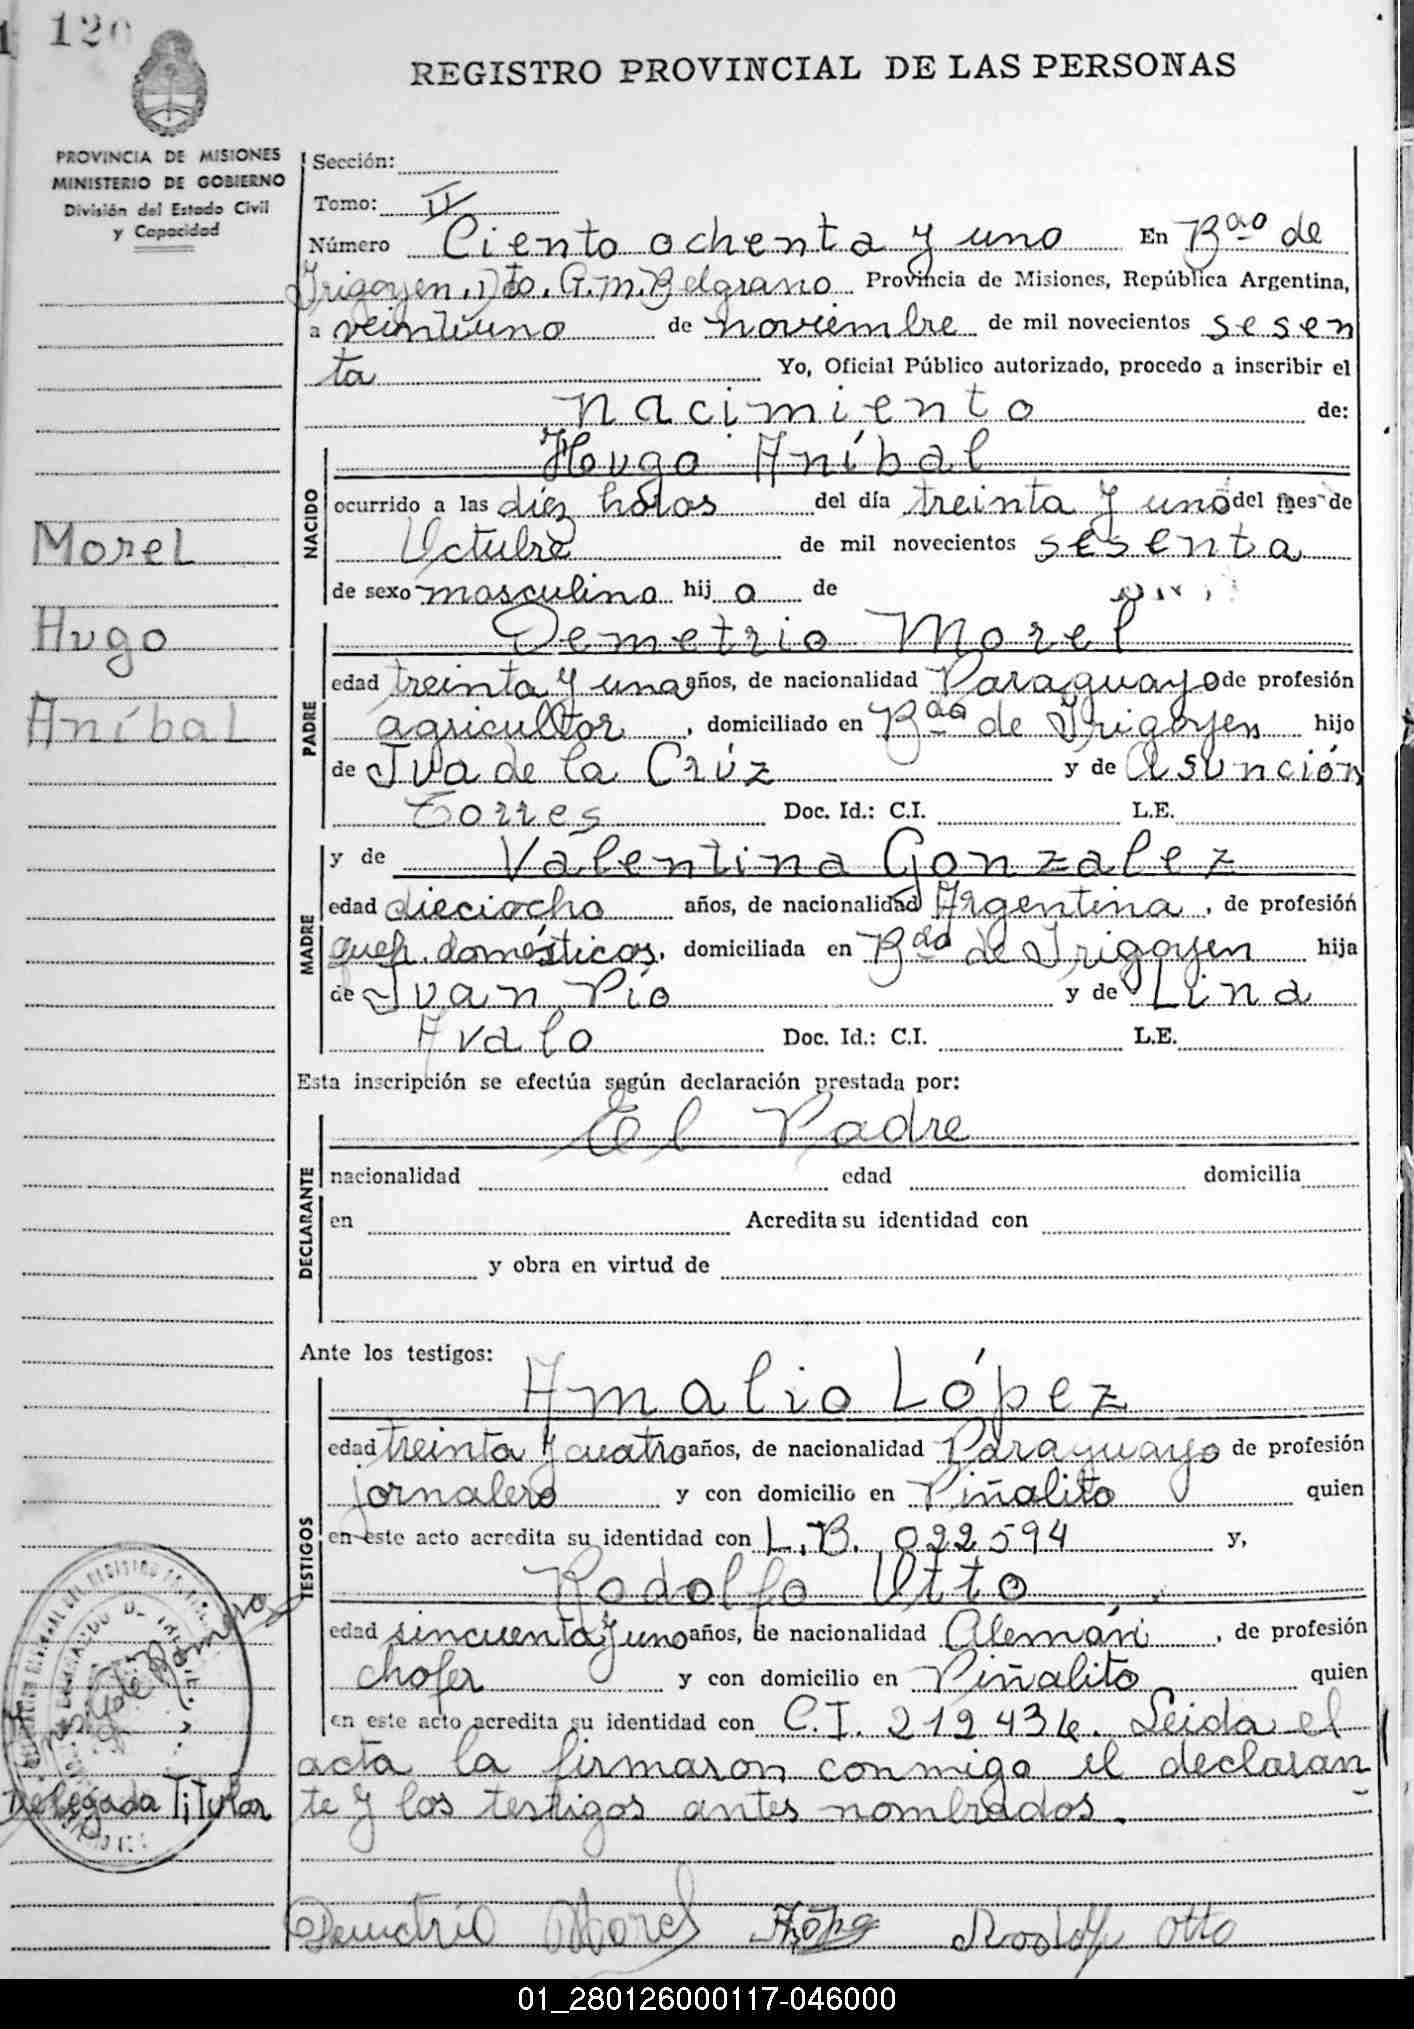 120
REGISTRO PROVINCIAL DE LAS PERSONAS
PROVINCIA DE MISIONES
MINISTERIO DE GOBIERNO
División del Estado Civil
y Capacidad
Sección:
Tomo: II
Número Ciento ochenta y uno En B do de
Irigoyen, Dto. G.M. Belgrano Provincia de Misiones, República Argentina,
a veintiuno de noviembre de mil novecientos sesen
ta Yo, Oficial Público autorizado, procedo a inscribir el
nacimiento de:
NACIDO
Hugo Aníbal
ocurrido a las diez horas del día treinta y uno del mes de
Octubre de mil novecientos sesenta
de sexo masculino hij o de
Morel
Hugo
Aníbal
PADRE
Demetrio Morel
edad treinta y uno años, de nacionalidad Paraguayo de profesión
agricultor, domiciliado en Bdo de Irigoyen hijo
de Jua de la Crúz y de Asunción
Torres Doc. Id.: C.I. L.E.
MADRE
y de Valentina Gonzalez
edad dieciocho años, de nacionalidad Argentina, de profesión
queh. domésticos, domiciliada en Bdo de Irigoyen hija
de Juan Pio y de Lina
Avalo Doc. Id.: C.I. L.E.
Esta inscripción se efectúa según declaración prestada por:
DECLARANTE
El Padre
nacionalidad edad domicilia
en Acredita su identidad con
y obra en virtud de
Ante los testigos:
TESTIGOS
Amalio López
edad treinta y cuatro años, de nacionalidad Paraguayo de profesión
jornalero y con domicilio en Piñalito quien
en este acto acredita su identidad con L.B. 022594 y,
Rodolfo Otto
edad sincuenta y uno años, de nacionalidad Alemán, de profesión
chofer y con domicilio en Piñalito quien
en este acto acredita su identidad con C.I. 219434. Leida el
acta la firmaron conmigo el declaran
te y los testigos antes nombrados.
Delegada Titular
Demetrio Morel ALópez Rodolf Otto
01_280126000117-046000